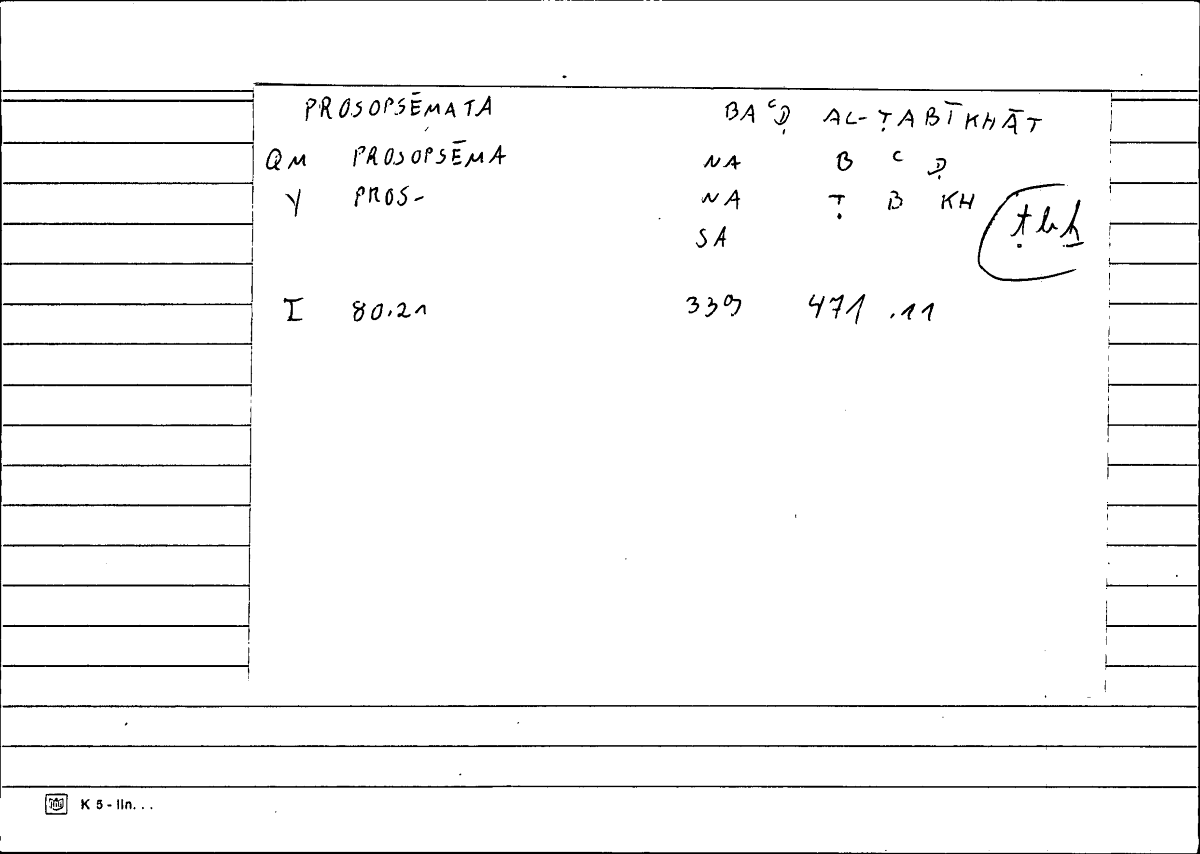 PROSOPSĒMATA BAᶜḌ AL-ṬABĪKHĀT
QM PROSOPSĒMA NA B ᶜ Ḍ
Y PROS- NA Ṭ B KH ṭbḫ
SA
I 80.21 339 471 .11
K 5 - lin. . .